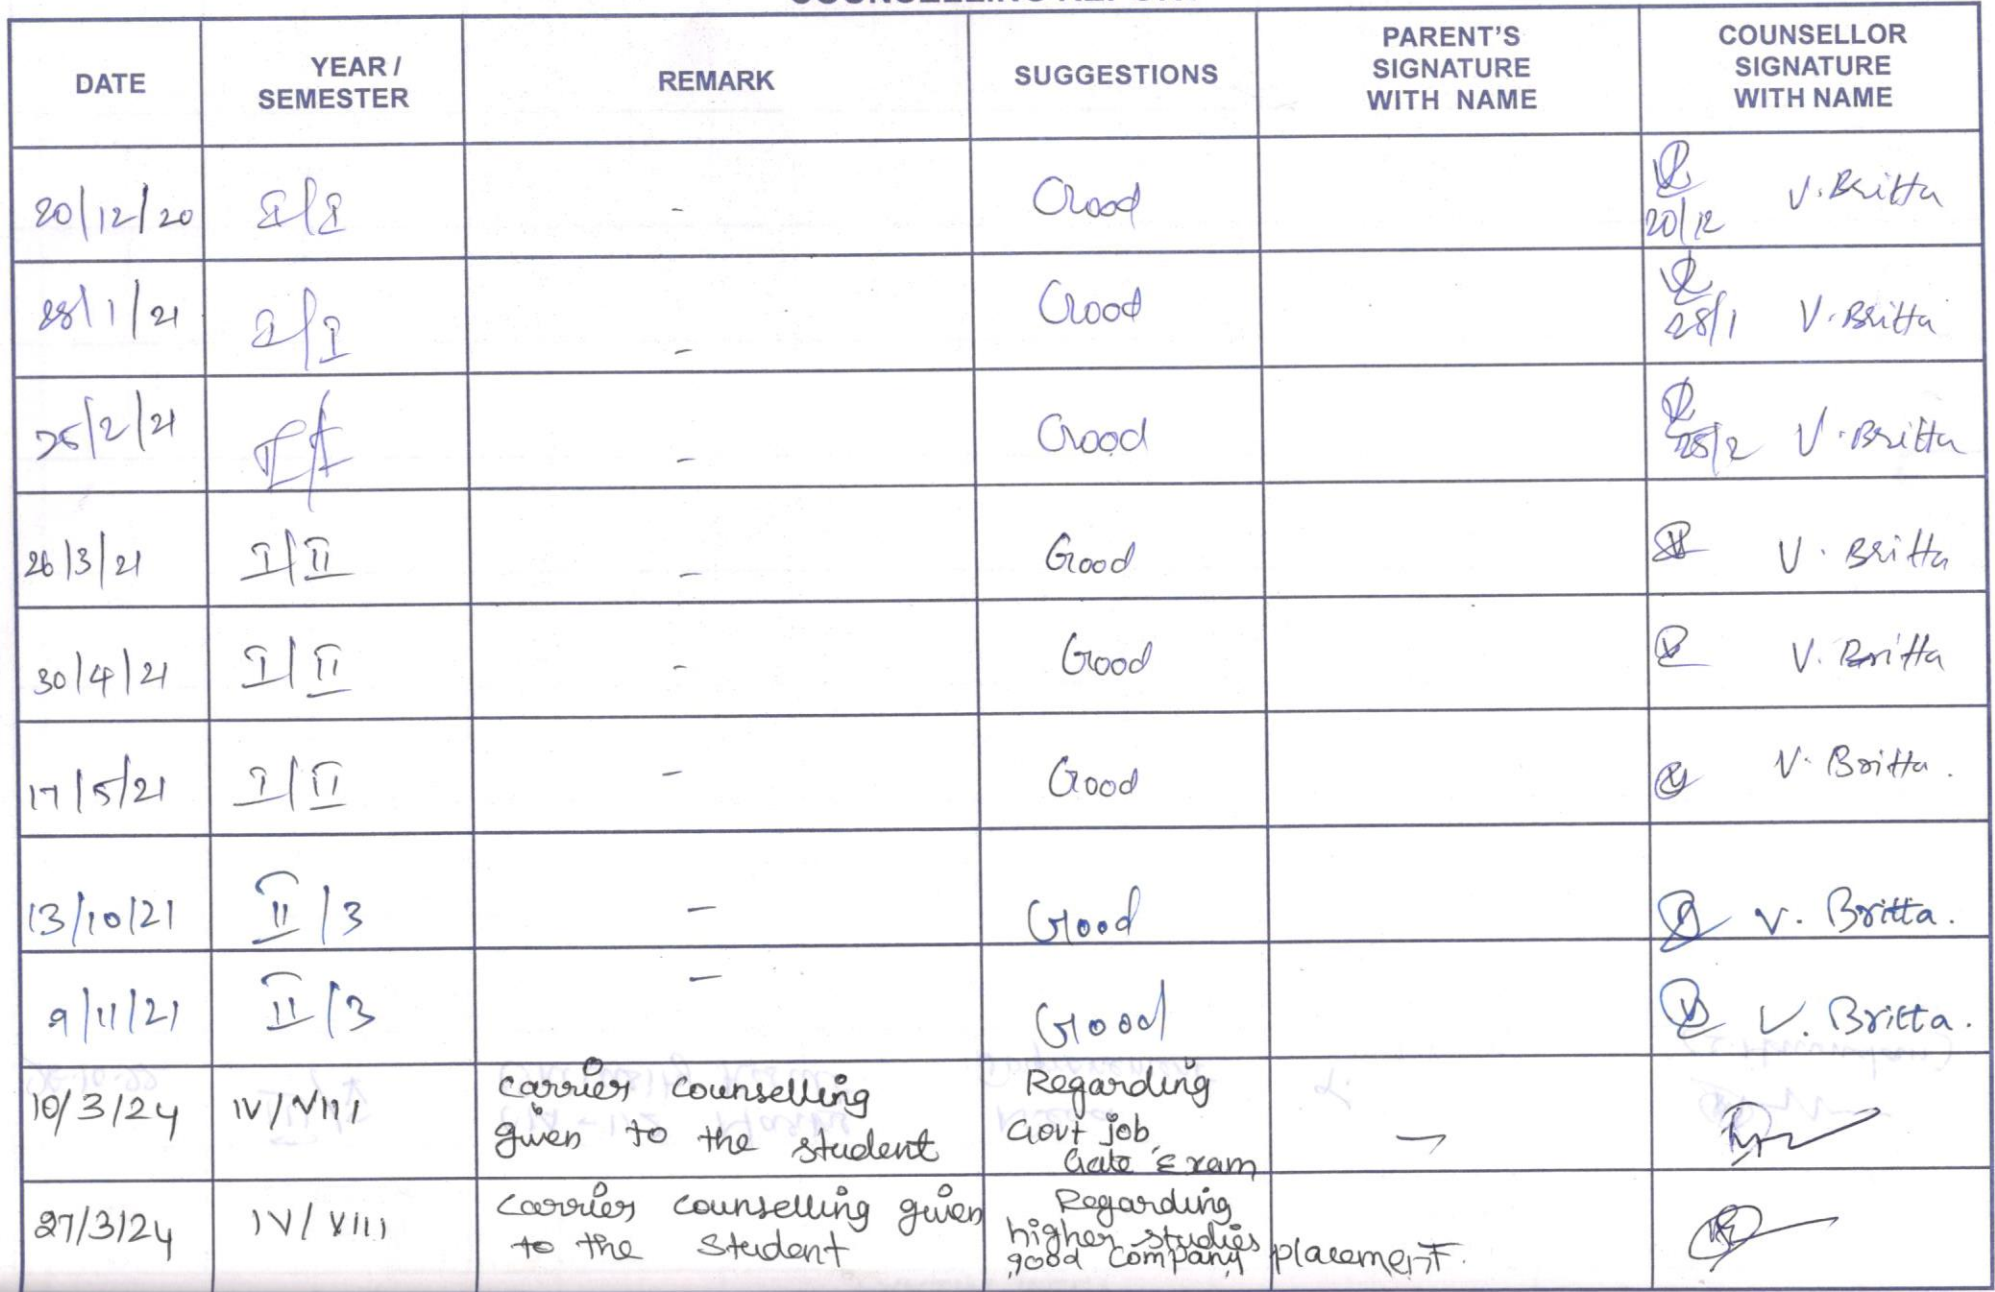 DATE YEAR / SEMESTER REMARK SUGGESTIONS PARENT'S SIGNATURE WITH NAME COUNSELLOR SIGNATURE WITH NAME
20/12/20 I/I - Good 20/12 V. Britta
28/1/21 I/I - Good 28/1 V. Britta
25/2/21 I/I - Good 25/2 V. Britta
26/3/21 I/II - Good V. Britta
30/4/21 I/II - Good V. Britta
17/5/21 I/II - Good V. Britta.
13/10/21 II/3 - Good V. Britta.
9/11/21 II/3 - Good V. Britta.
10/3/24 IV/VIII carrier counselling given to the student Regarding Govt job, Gate Exam -
27/3/24 IV/VIII carrier counselling given to the student Regarding higher studies good company placement.